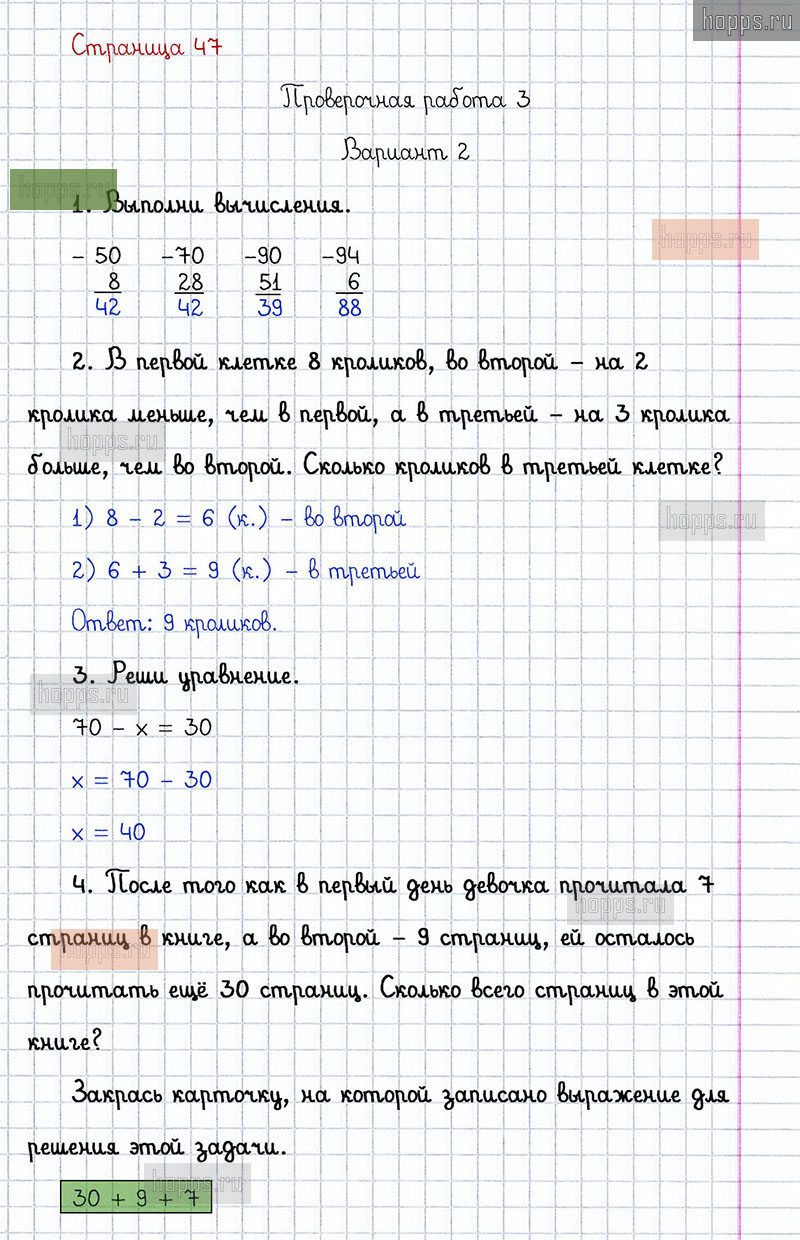 hopps.ru
Страница 47
Проверочная работа 3
Вариант 2
hopps.ru
1. Выполни вычисления.
hopps.ru
– 50 –70 –90 –94
8 28 51 6
42 42 39 88
2. В первой клетке 8 кроликов, во второй – на 2
кролика меньше, чем в первой, а в третьей – на 3 кролика
hopps.ru
больше, чем во второй. Сколько кроликов в третьей клетке?
1) 8 – 2 = 6 (к.) – во второй
hopps.ru
2) 6 + 3 = 9 (к.) – в третьей
Ответ: 9 кроликов.
3. Реши уравнение.
hopps.ru
70 – х = 30
х = 70 – 30
х = 40
4. После того как в первый день девочка прочитала 7
hopps.ru
страниц в книге, а во второй – 9 страниц, ей осталось
hopps.ru
прочитать ещё 30 страниц. Сколько всего страниц в этой
книге?
Закрась карточку, на которой записано выражение для
решения этой задачи.
hopps.ru
30 + 9 + 7